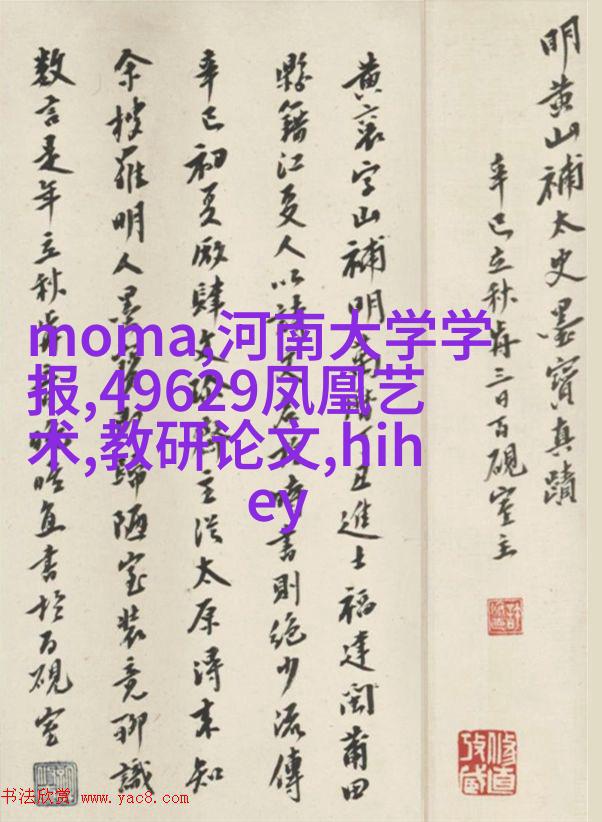 明黄山補太史墨寶真蹟
辛巳立秋后三日百硯室主
黄襄字山補明丑進士福建閩莆田
縣籍江夏人以詩時書則絕少流傳
辛巳初夏廠肆文主從太原得来知
余搜羅明人墨歸陋室装竟聊識
數言是年立秋書於百硯室
moma,河南大学学
报,49629凤凰艺
术,教研论文,hih
ey
书法欣赏 www.yac8.com